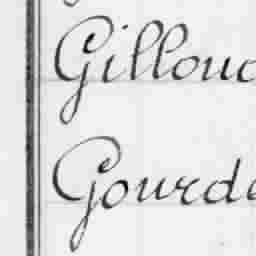 Gillouc
Gourde